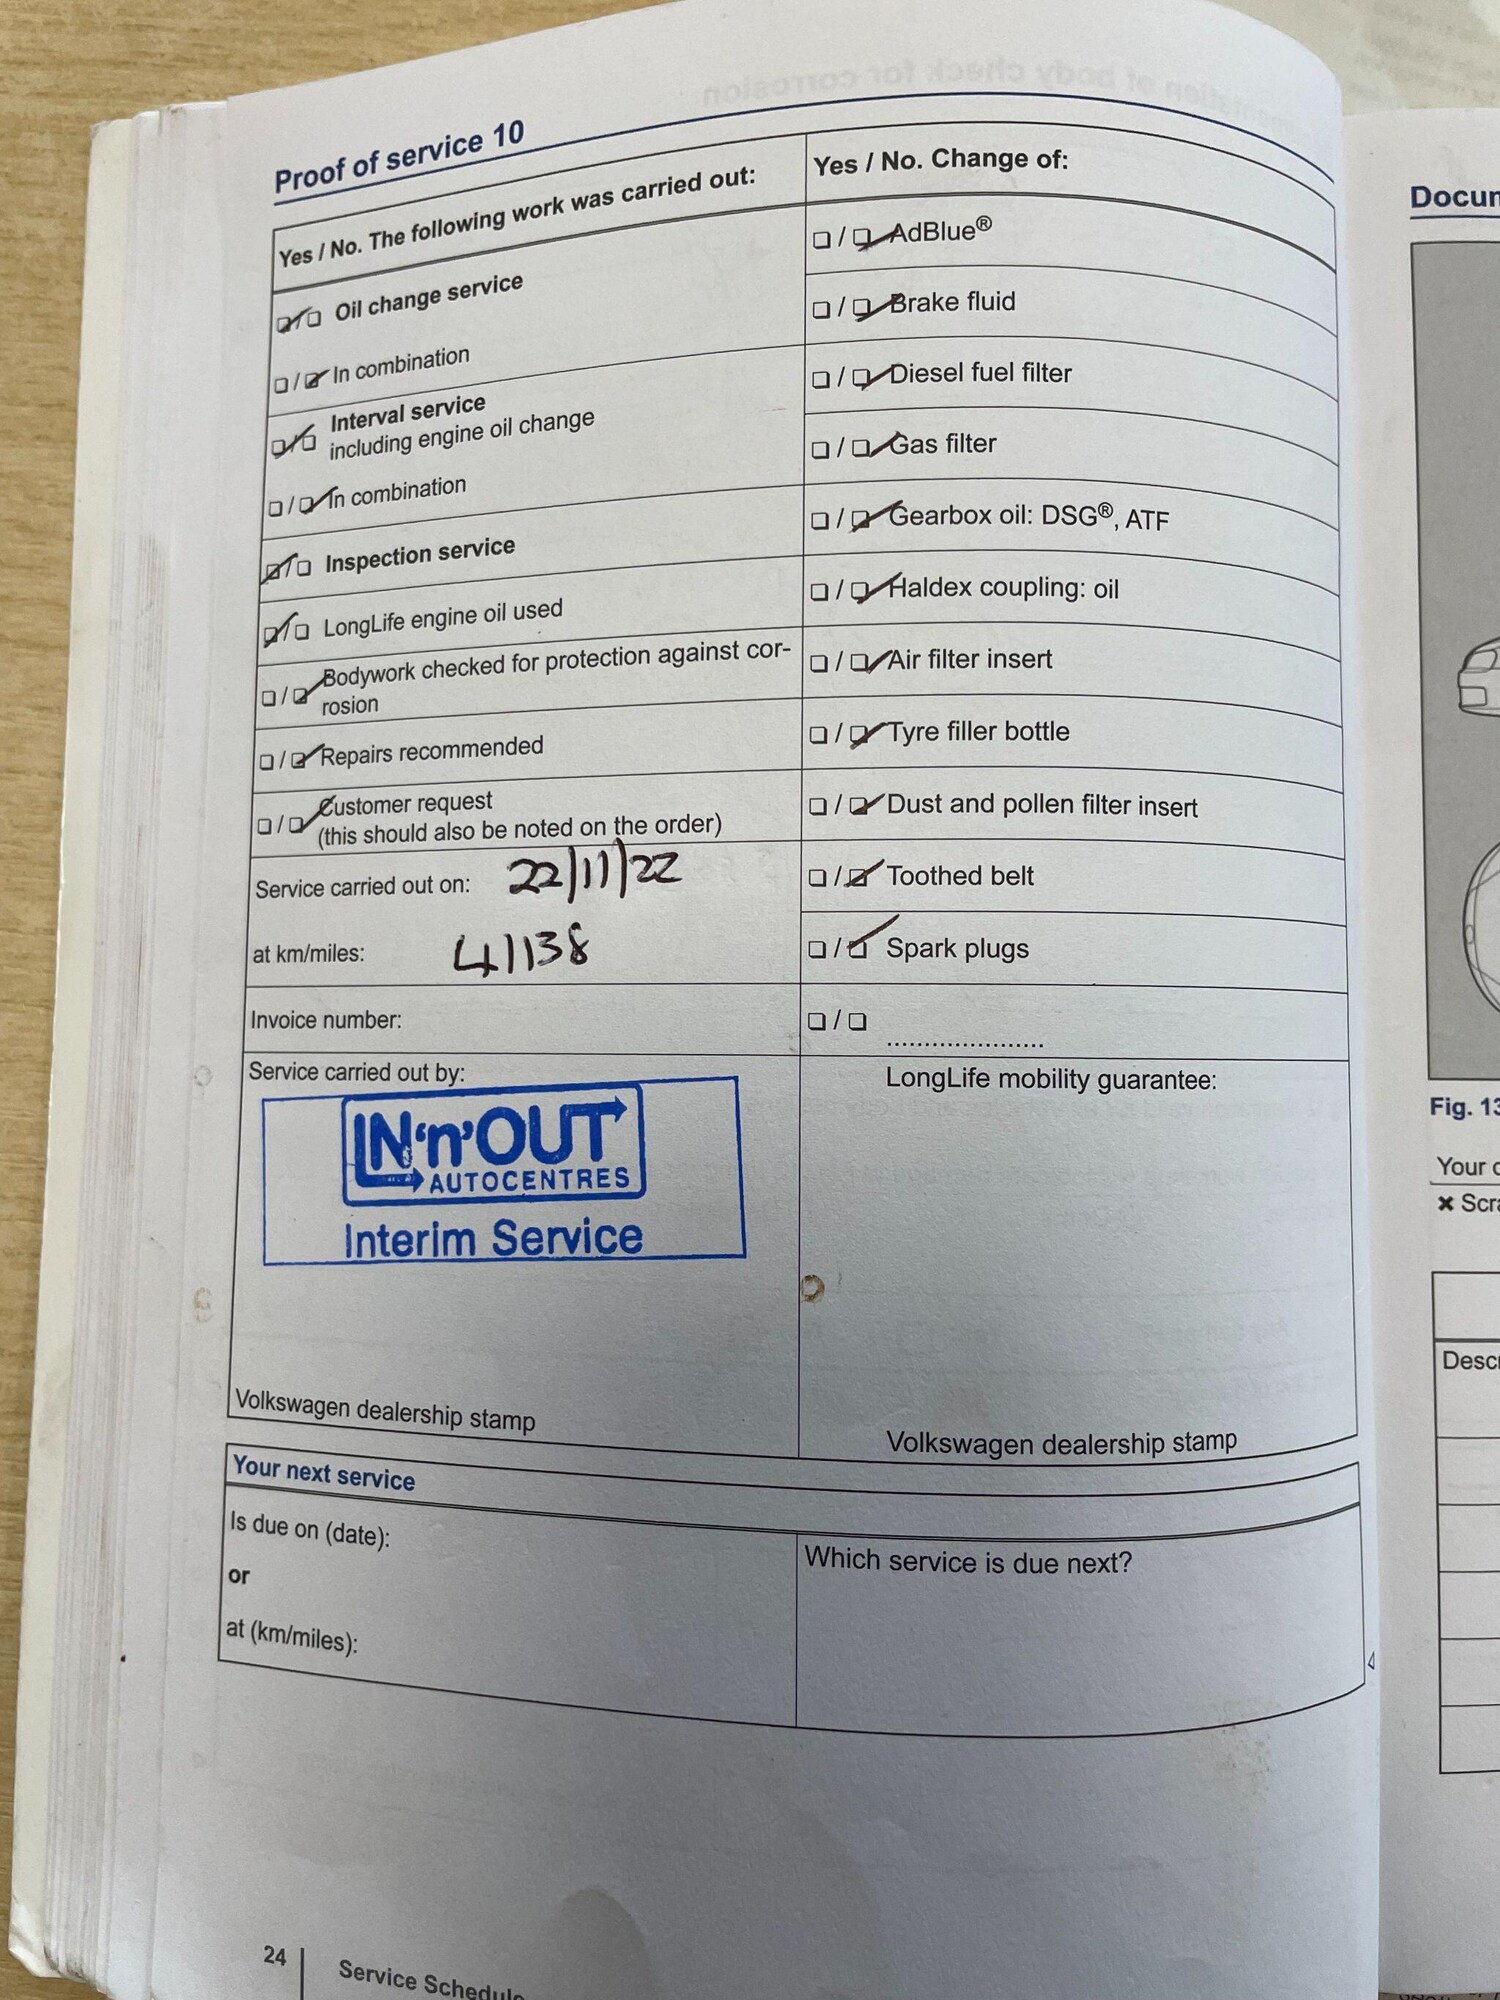 Proof of service 10
Yes / No. The following work was carried out:
Oil change service
In combination
Interval service
including engine oil change
In combination
Inspection service
LongLife engine oil used
Bodywork checked for protection against cor-
rosion
Repairs recommended
Customer request
(this should also be noted on the order)
Service carried out on: 22/11/22
at km/miles: 41138
Invoice number:
Service carried out by:
IN'n'OUT
AUTOCENTRES
Interim Service
Volkswagen dealership stamp
Yes / No. Change of:
AdBlue®
Brake fluid
Diesel fuel filter
Gas filter
Gearbox oil: DSG®, ATF
Haldex coupling: oil
Air filter insert
Tyre filler bottle
Dust and pollen filter insert
Toothed belt
Spark plugs
.....................
LongLife mobility guarantee:
Volkswagen dealership stamp
Your next service
Is due on (date):
or
at (km/miles):
Which service is due next?
24
Service Schedule
Docum
Fig. 13
Your
Scra
Descr